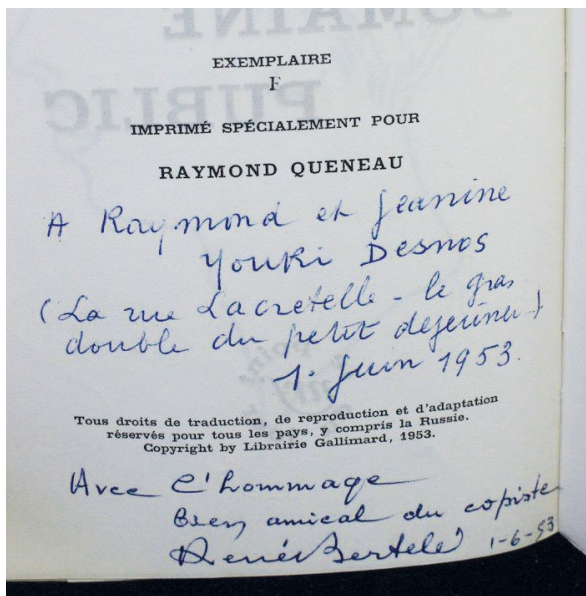 EXEMPLAIRE
F
IMPRIMÉ SPÉCIALEMENT POUR
RAYMOND QUENEAU
A Raymond et Jeanine
Youki Desnos
(La rue Lacretelle - le gras
double du petit dejeuner)
1. Juin 1953.
Tous droits de traduction, de reproduction et d'adaptation
réservés pour tous les pays, y compris la Russie.
Copyright by Librairie Gallimard, 1953.
Avec l'hommage
Bien amical du copiste
René Bertelé 1-6-53
DOMAINE
PUBLIC